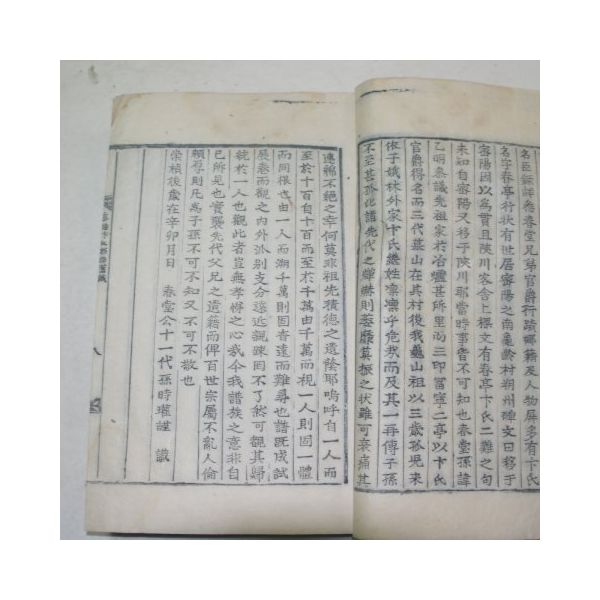 名臣錄詳悉春堂兄弟官爵行蹟鄉籍及人物屛多有卞氏
名字春亭行狀有世居密陽之南龜齡村朔州碑文曰移于
密陽因以爲貫且陜川客舍上樑文有春亭卞氏二難之句
未知自密陽又移于陜川耶當時事皆不可知也春堂孫諱
乙明叅議先祖家於冶爐甚所里而三印冨寜二亭以卞氏
官爵得名而三代墓山在其村後我龜山祖以三歲孤兒來
依于娥林外家卞氏継姓凜凜乎危哉而及其一再傳子孫
不至甚孤此譜先代之蟬赫則萎靡莫振之狀雖可哀痛其
連綿不絶之幸何莫非祖先積德之遺蔭耶嗚呼自一人而
至於十百自十百而至於千萬由千萬而視一人則固一體
而同根也由一人而溯千萬則固香遠而難尋也譜旣成試
展卷而觀之內外派别支分遠近親踈因不了然可觀其歸
統於一人也觀此者豈無孝悌之心哉今我譜族之意非自
已所見也實襲先代父兄之遺籍而俾百世宗屬不亂人倫
頼存則凡爲子孫不可不知又不可不敬也
崇楨後歲在辛卯月日 春堂公十一代孫時瓘謹 識
八